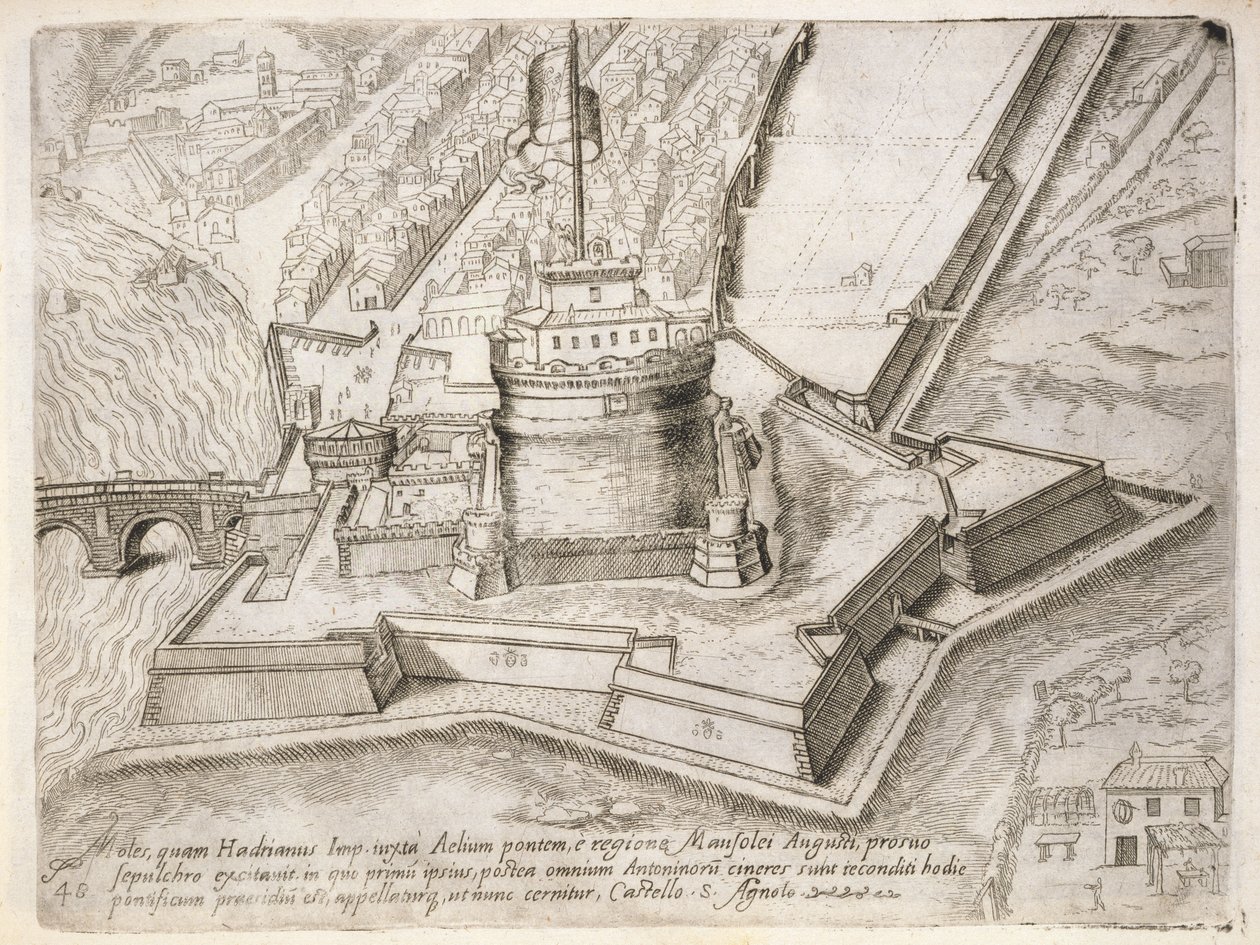 Moles, quam Hadrianus Imp. iuxtà Aelium pontem, è regione Mausolei Augusti, prosuo
sepulchro excitauit. in quo primũ ipsius, postea omnium Antoninorũ cineres sunt reconditi hodie
48 pontificum praesidiũ est, appellaturq, ut nunc cernitur, Castello. S. Agnolo